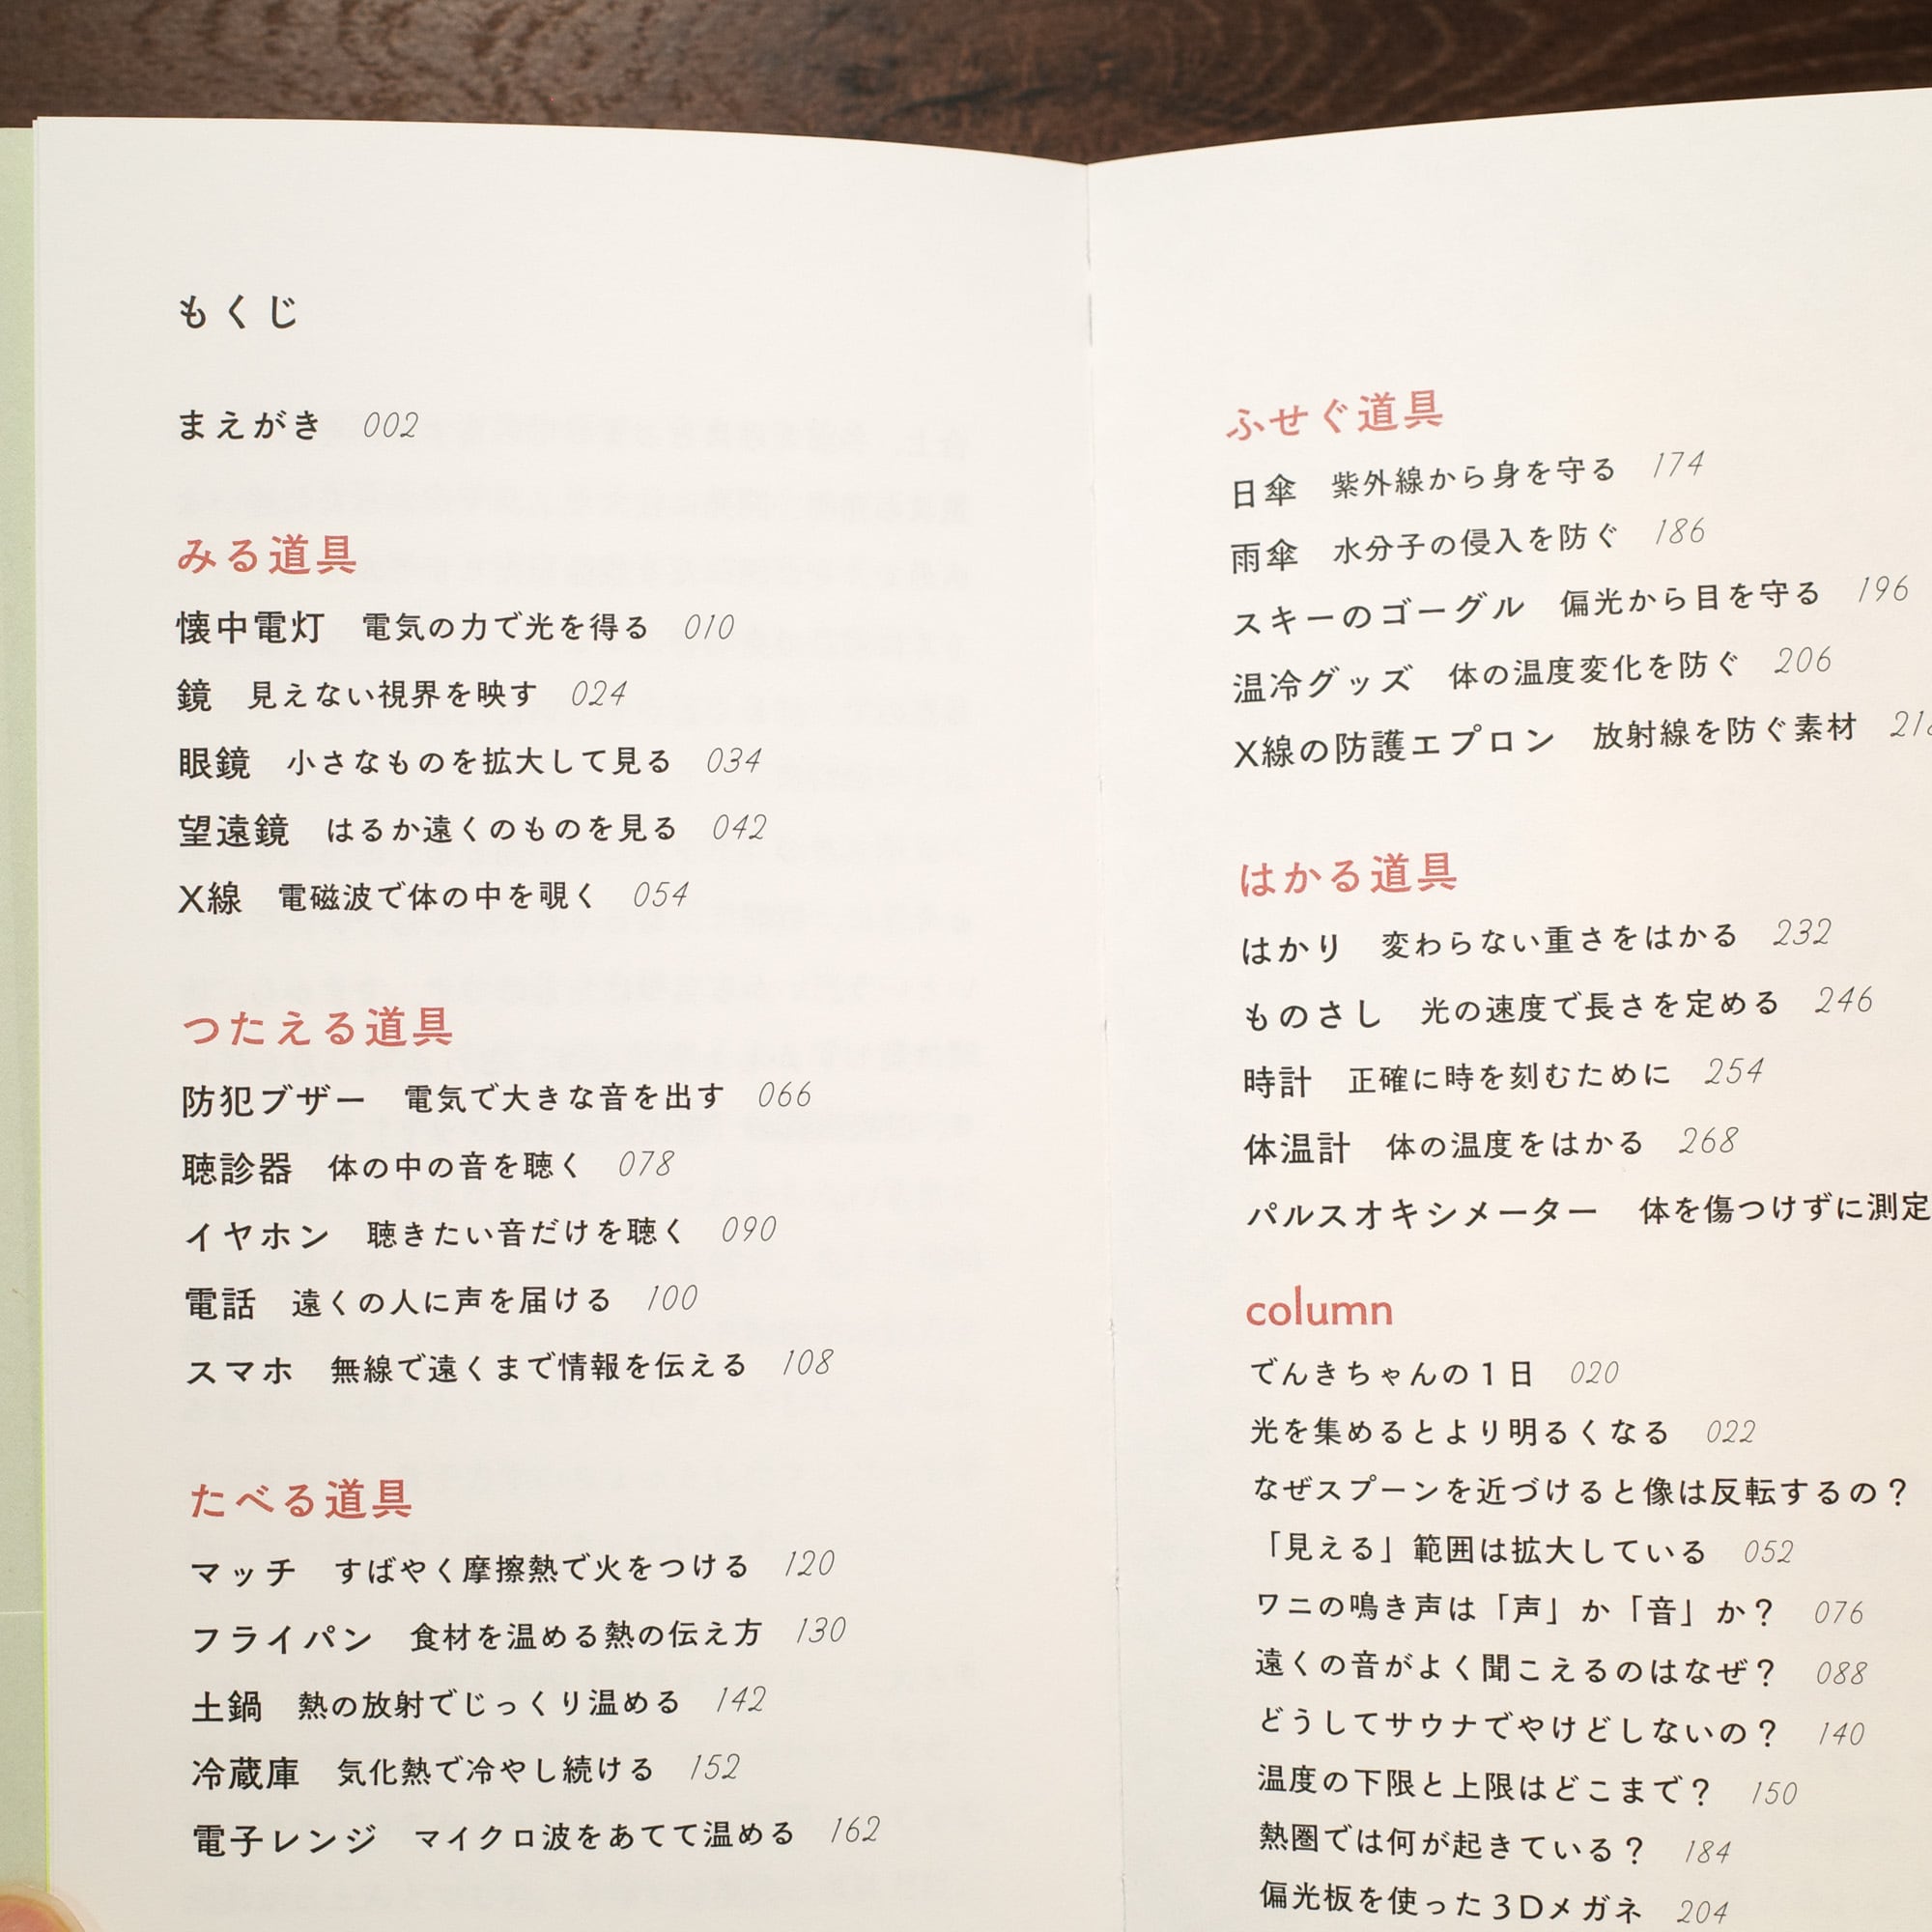 もくじ
まえがき 002
みる道具
懐中電灯 電気の力で光を得る 010
鏡 見えない視界を映す 024
眼鏡 小さなものを拡大して見る 034
望遠鏡 はるか遠くのものを見る 042
X線 電磁波で体の中を覗く 054
つたえる道具
防犯ブザー 電気で大きな音を出す 066
聴診器 体の中の音を聴く 078
イヤホン 聴きたい音だけを聴く 090
電話 遠くの人に声を届ける 100
スマホ 無線で遠くまで情報を伝える 108
たべる道具
マッチ すばやく摩擦熱で火をつける 120
フライパン 食材を温める熱の伝え方 130
土鍋 熱の放射でじっくり温める 142
冷蔵庫 気化熱で冷やし続ける 152
電子レンジ マイクロ波をあてて温める 162
ふせぐ道具
日傘 紫外線から身を守る 174
雨傘 水分子の侵入を防ぐ 186
スキーのゴーグル 偏光から目を守る 196
温冷グッズ 体の温度変化を防ぐ 206
X線の防護エプロン 放射線を防ぐ素材
はかる道具
はかり 変わらない重さをはかる 232
ものさし 光の速度で長さを定める 246
時計 正確に時を刻むために 254
体温計 体の温度をはかる 268
パルスオキシメーター 体を傷つけずに測定
column
でんきちゃんの1日 020
光を集めるとより明るくなる 022
なぜスプーンを近づけると像は反転するの？
「見える」範囲は拡大している 052
ワニの鳴き声は「声」か「音」か？ 076
遠くの音がよく聞こえるのはなぜ？ 088
どうしてサウナでやけどしないの？ 140
温度の下限と上限はどこまで？ 150
熱圏では何が起きている？ 184
偏光板を使った3Dメガネ 204